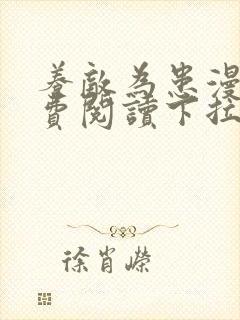 養敵為患漫
費閱讀下拉
徐肖嶸